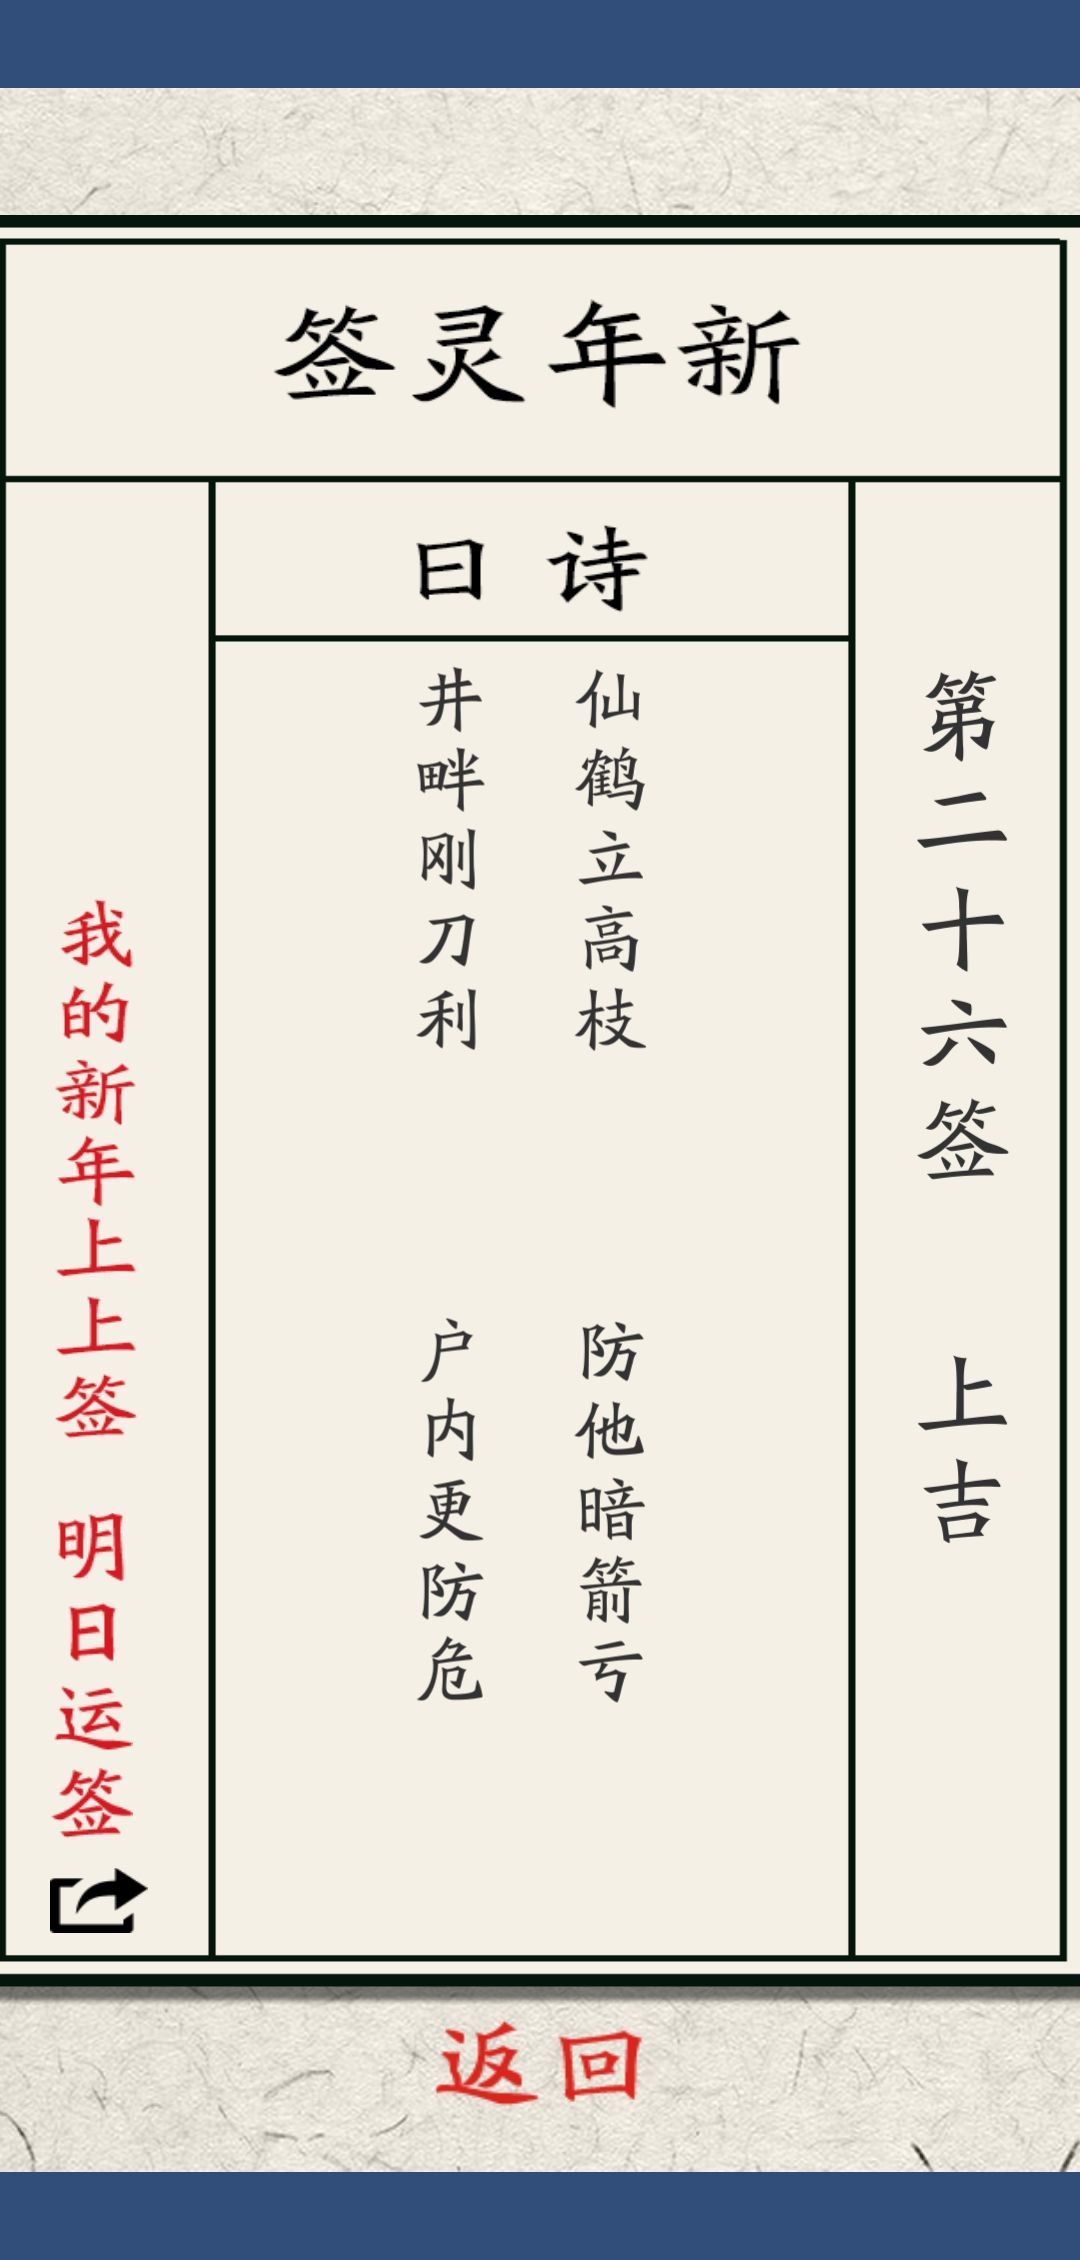 新年灵签
诗曰
第二十六签 上吉
仙鹤立高枝 防他暗箭亏
井畔刚刀利 户内更防危
我的新年上上签 明日运签
返回